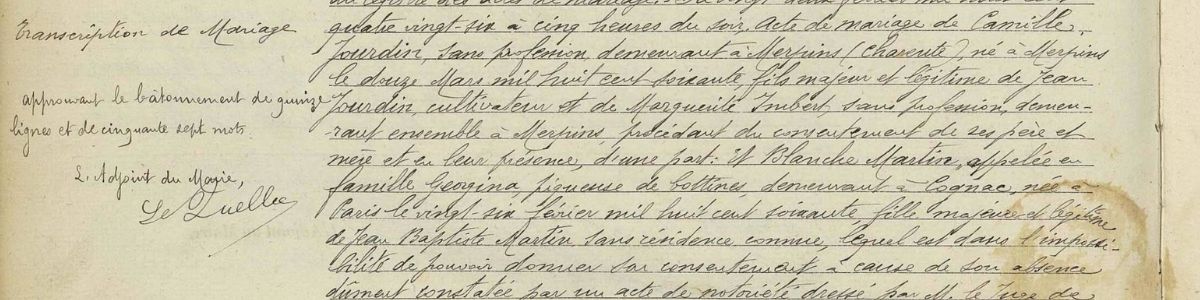 Transcription de Mariage
approuvant le bâtonnement de quinze
lignes et de cinquante sept mots.
L'Adjoint du Maire,
quatre vingt-six à cinq heures du soir. Acte de mariage de Camille
Jourdin, sans profession, demeurant à Merpins (Charente), né à Merpins
le douze Mars mil huit cent soixante, fils majeur et légitime de Jean
Jourdin, cultivateur et de Marguerite Imbert, sans profession, demeu-
rant ensemble à Merpins, procédant du consentement de ses père et
mère et en leur présence, d'une part. Et Blanche Martin, appelée en
famille Georgina, piqueuse de bottines, demeurant à Cognac, née à
Paris le vingt-six février mil huit cent soixante, fille majeure et légitime
de Jean Baptiste Martin sans résidence connue, lequel est dans l'impossi-
bilité de pouvoir donner son consentement à cause de son absence
dûment constatée par un acte de notoriété dressé par M. le Juge de